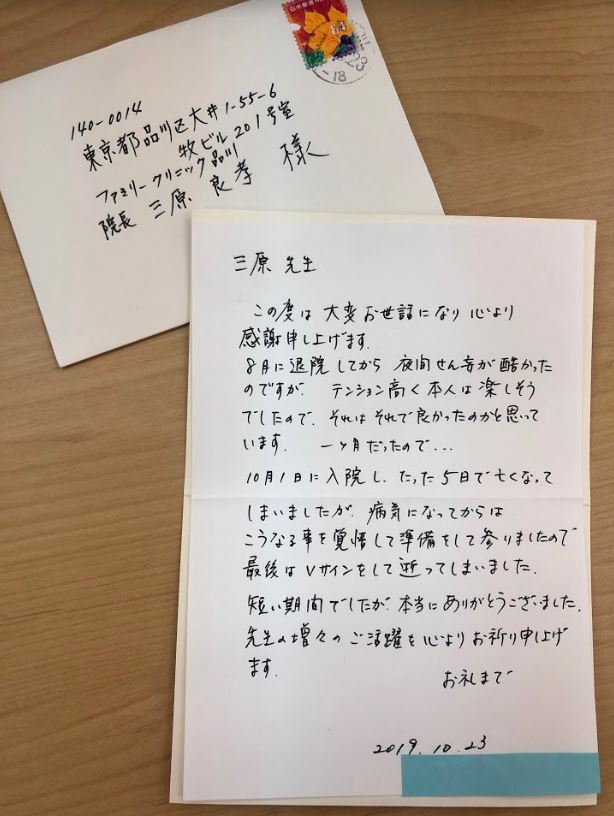 日本郵便
18
23
140-0014
東京都品川区大井1-55-6
牧ビル201号室
ファミリークリニック品川
院長 三原 良孝 様
三原 先生
この度は 大変お世話になり 心より
感謝申し上げます.
8月に退院してから 夜間せん妄が酷かった
のですが. テンション高く本人は楽しそう
でしたので. それはそれで良かったのかと思って
います. 一ヶ月だったので...
10月1日に入院し. たった5日で亡くなって
しまいましたが. 病気になってからは
こうなる事を覚悟して準備をして参りましたので
最後はVサインをして逝ってしまいました.
短い期間でしたが. 本当にありがとうございました.
先生の増々のご活躍を心よりお祈り申上げ
ます.
お礼まで
2019.10.23